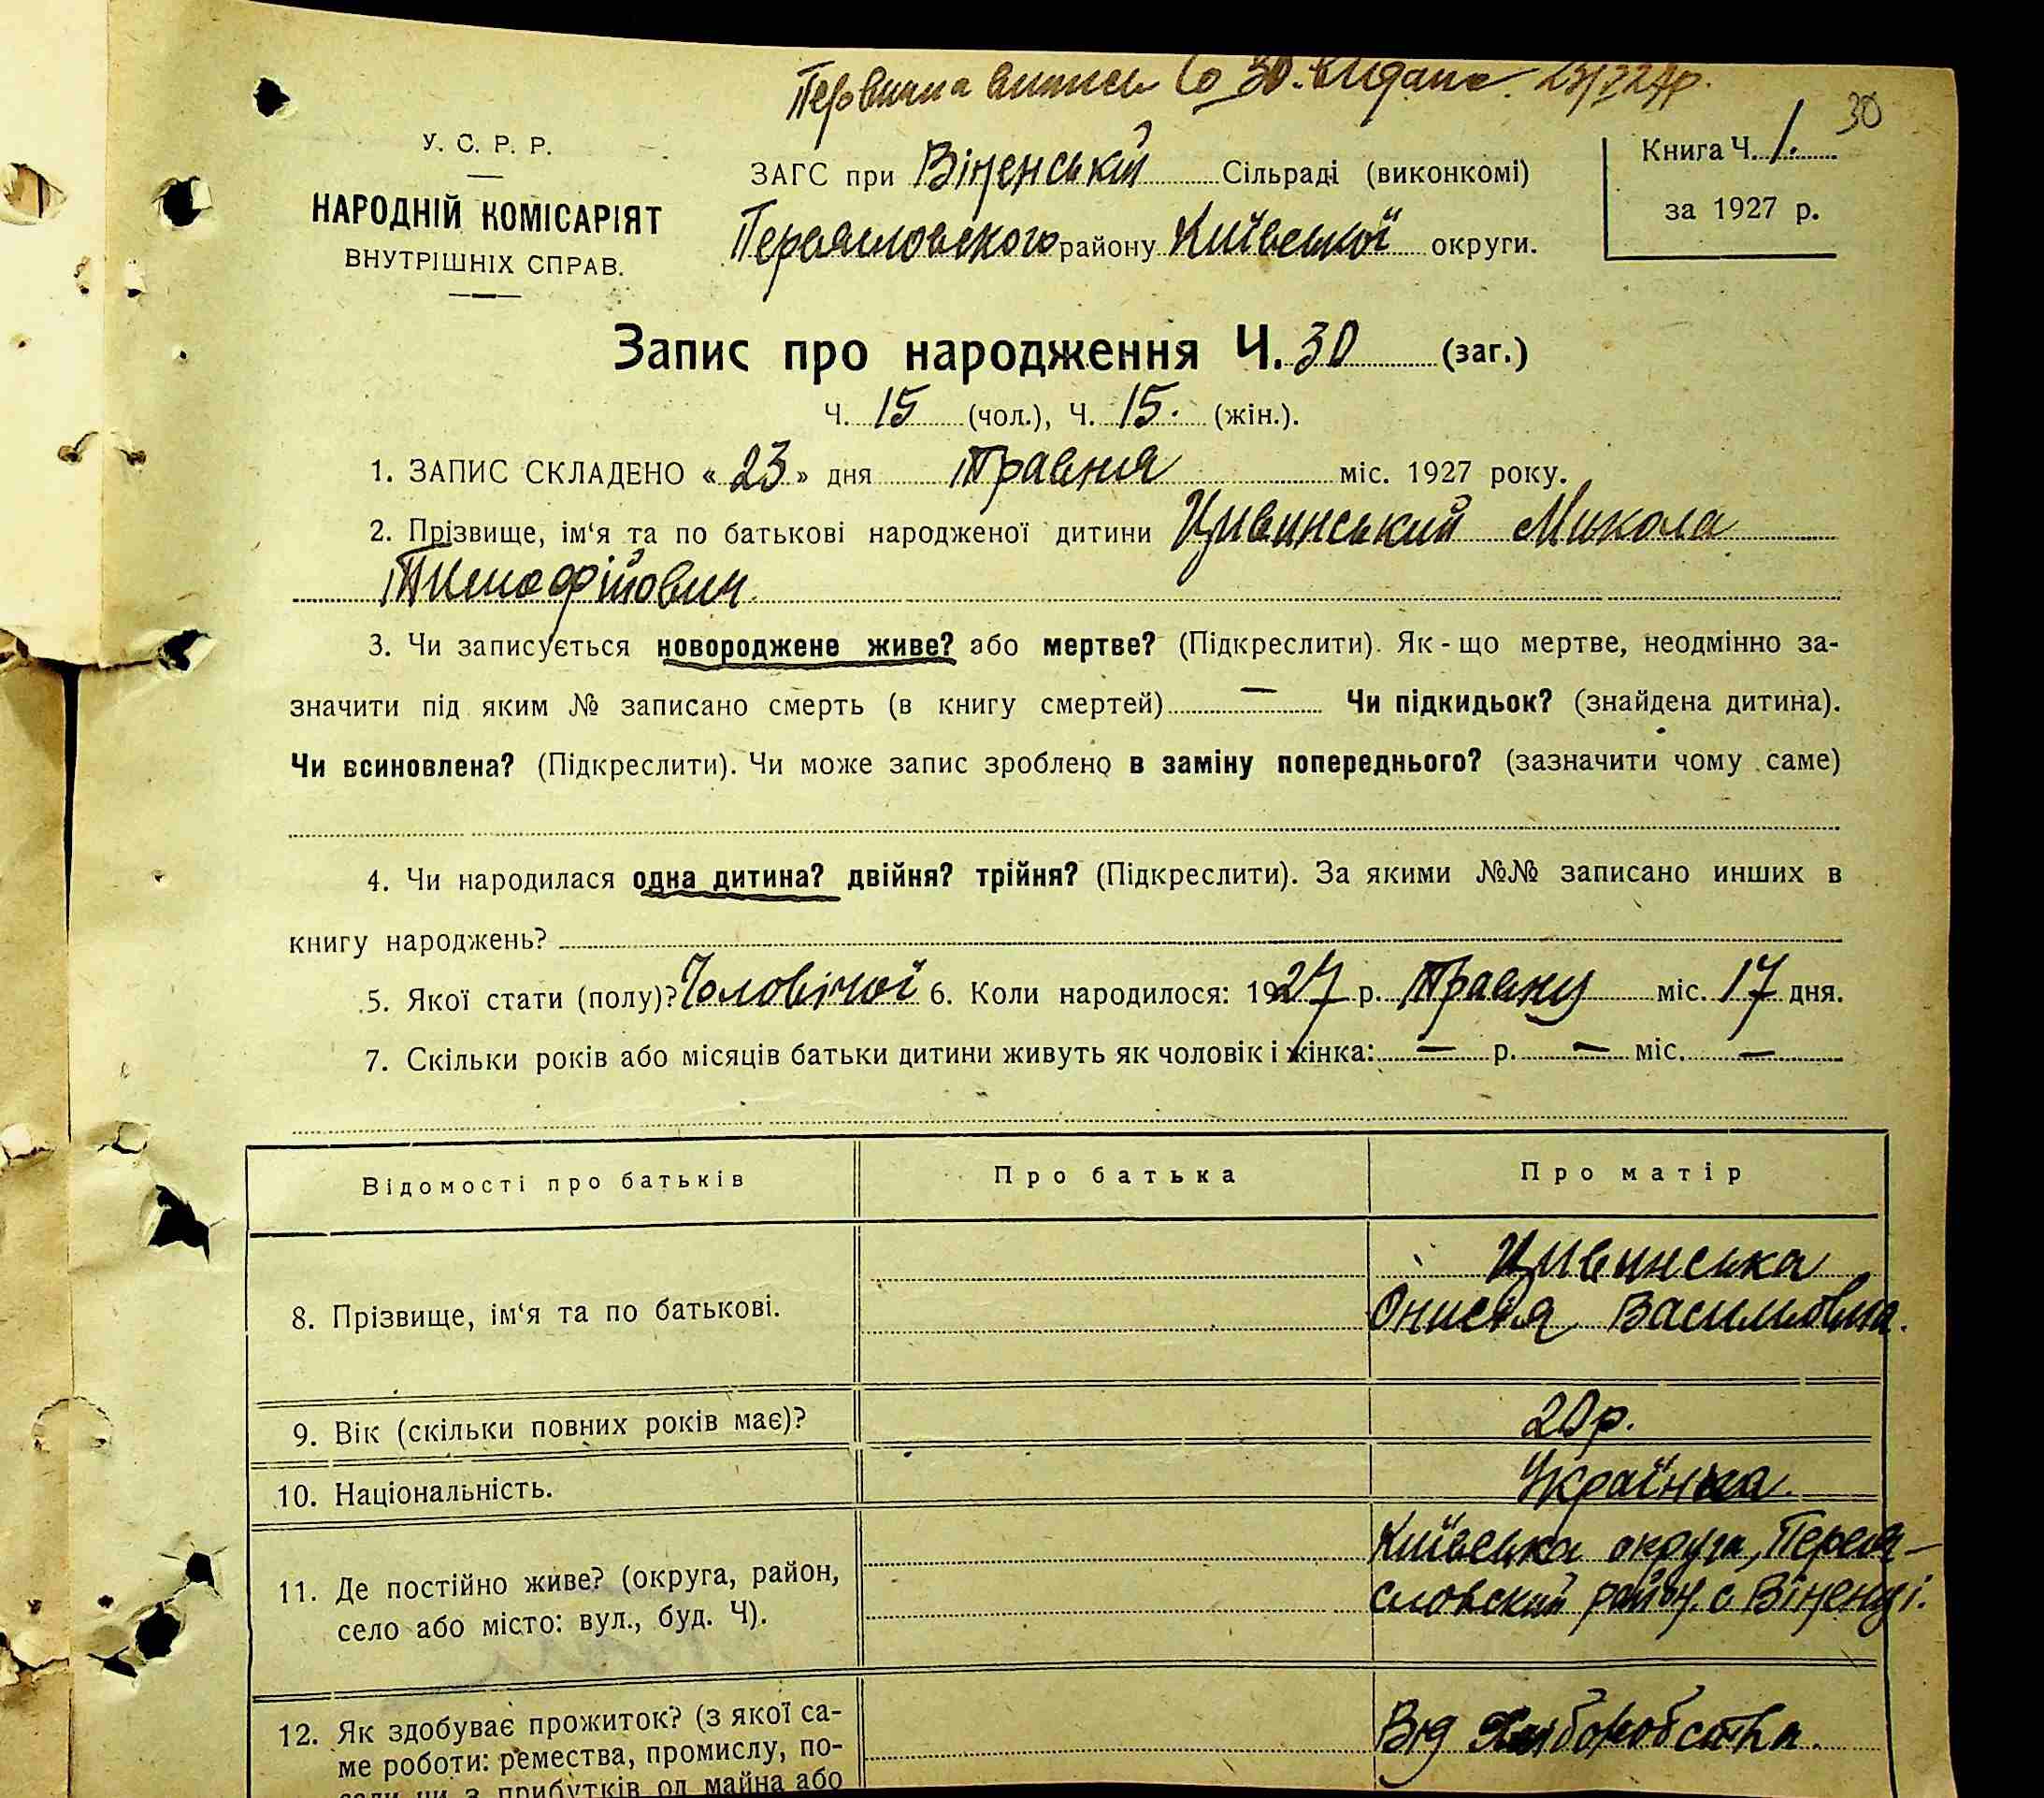 Первична випись Со 30. видана. 23/V 27р.
30
У. С. Р. Р.
НАРОДНІЙ КОМІСАРІЯТ
ВНУТРІШНІХ СПРАВ.
ЗАГС при Віненській Сільраді (виконкомі)
Переясловского району Київської округи.
Книга Ч. 1.
за 1927 р.
Запис про народження Ч. 30 (заг.)
Ч. 15 (чол.), Ч. 15. (жін.).
1. ЗАПИС СКЛАДЕНО « 23 » дня Травня міс. 1927 року.
2. Прізвище, ім'я та по батькові народженої дитини Цивинський Микола
Тимофійович
3. Чи записується новороджене живе? або мертве? (Підкреслити). Як - що мертве, неодмінно за-
значити під яким № записано смерть (в книгу смертей) — Чи підкидьок? (знайдена дитина).
Чи всиновлена? (Підкреслити). Чи може запис зроблено в заміну попереднього? (зазначити чому саме)
4. Чи народилася одна дитина? двійня? трійня? (Підкреслити). За якими №№ записано инших в
книгу народжень?
5. Якої стати (полу)? Чоловічої 6. Коли народилося: 1927 р. Травну міс. 17 дня.
7. Скільки років або місяців батьки дитини живуть як чоловік і жінка: — р. — міс. —
Відомості про батьків Про батька Про матір
8. Прізвище, ім'я та по батькові.
Цивинська
Онисія Василовна.
9. Вік (скільки повних років має)? 20р.
10. Національність. Українка.
11. Де постійно живе? (округа, район,
село або місто: вул., буд. Ч).
Київська округа, Перея-
словский район. с Віненці.
12. Як здобуває прожиток? (з якої са-
ме роботи: ремества, промислу, по-
сади чи з прибутків од майна або
Від Хліборобства.